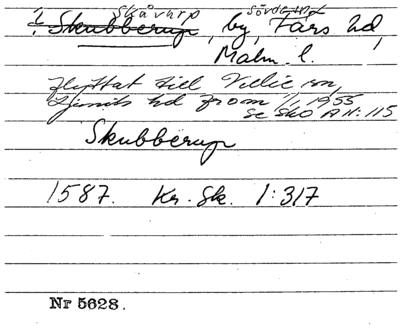 Skåvarp Södeund
1. Skubberup, by, Färs hd,
Malm. l.
Flyttat till Vellie sn,
Ljunits hd from 1/1 1955
se SkO A N: 115
Skubberup
1587. Kr. Sk. 1:317
Nr 5628.